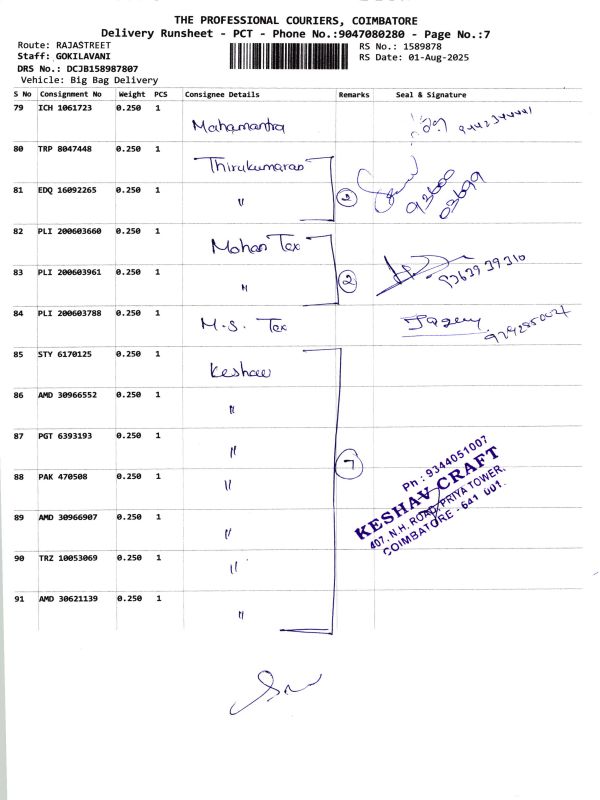 THE PROFESSIONAL COURIERS, COIMBATORE
Delivery Runsheet - PCT - Phone No.:9047080280 - Page No.:7
Route: RAJASTREET
Staff: GOKILAVANI
DRS No.: DCJB158987807
Vehicle: Big Bag Delivery
RS No.: 1589878
RS Date: 01-Aug-2025
S No Consignment No Weight PCS Consignee Details Remarks Seal & Signature
79 ICH 1061723 0.250 1 Mahamantra
80 TRP 8047448 0.250 1 Thirukumaran
81 EDQ 16092265 0.250 1 " 2 93600
03699
82 PLI 200603660 0.250 1 Mohan Tex
83 PLI 200603961 0.250 1 " 2 93639 39310
84 PLI 200603788 0.250 1 M.S. Tex
85 STY 6170125 0.250 1 Keshav
86 AMD 30966552 0.250 1 "
87 PGT 6393193 0.250 1 " 7
88 PAK 470508 0.250 1 "
89 AMD 30966907 0.250 1 "
90 TRZ 10053069 0.250 1 "
91 AMD 30621139 0.250 1 "
Ph : 9344051007
KESHAV CRAFT
407, N.H. ROAD, PRIYA TOWER,
COIMBATORE - 641 001.